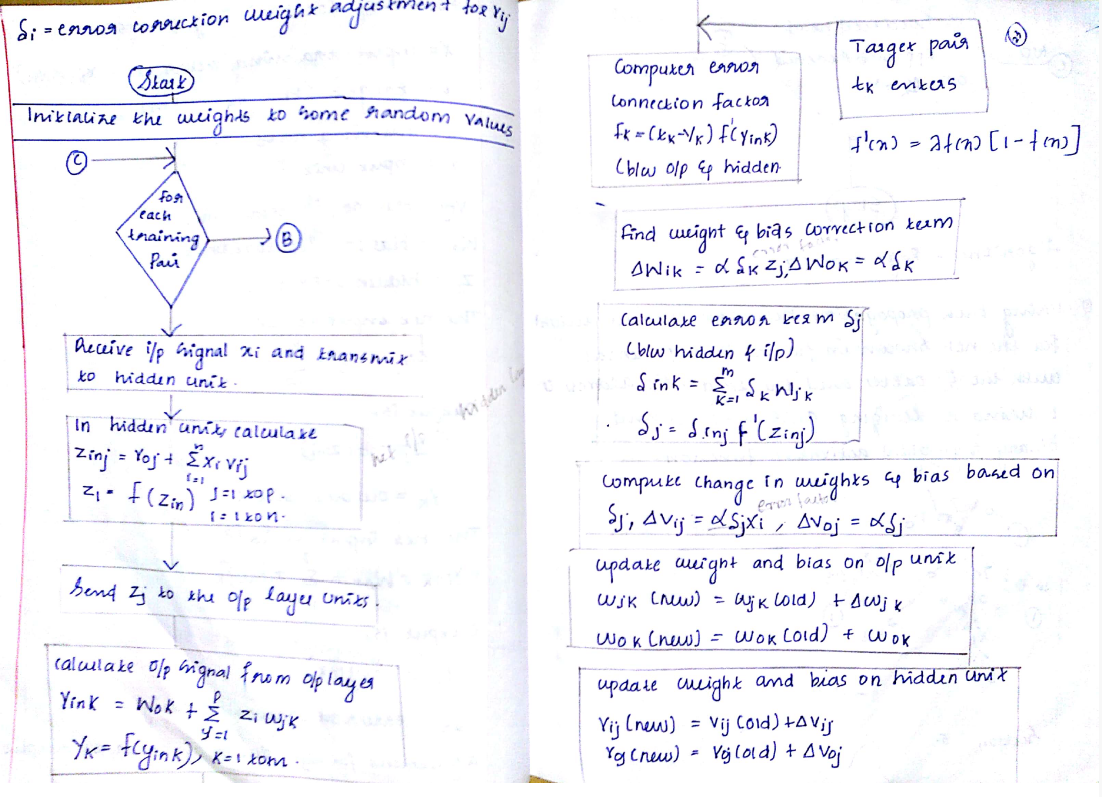 δi = error correction weight adjustment for vij
Start
Initialize the weights to some random values
C
for
each
training
Pair
B
Receive i/p signal xi and transmit
to hidden unit.
In hidden unit, calculate
Zinj = Voj + Σ xi vij
n
i=1
Z1 = f(Zin) j=1 to p.
i=1 to n.
Send Zj to the o/p layer units.
calculate o/p signal from o/p layer
Yink = Wok + Σ zi wjk
p
y=1
Yk = f(yink), k=1 to m.
Target pair
tk enters
Computer error
Connection factor
fk = (tk-Yk) f'(Yink)
(b/w o/p & hidden
f'(n) = λf(n) [1-f(n)]
find weight & bias correction term
ΔWik = α δk Zj, ΔWok = αδk
Calculate error term δj
(b/w hidden & i/p)
δink = Σ δk Wjk
m
k=1
δj = δinj f'(Zinj)
compute change in weights & bias based on
δj, Δvij = αδjxi, Δvoj = αδj
update weight and bias on o/p unit
wjk (new) = wjk (old) + Δwjk
wok (new) = wok (old) + wok
update weight and bias on hidden unit
Vij (new) = Vij (old) + ΔVij
Voj (new) = Voj (old) + ΔVoj